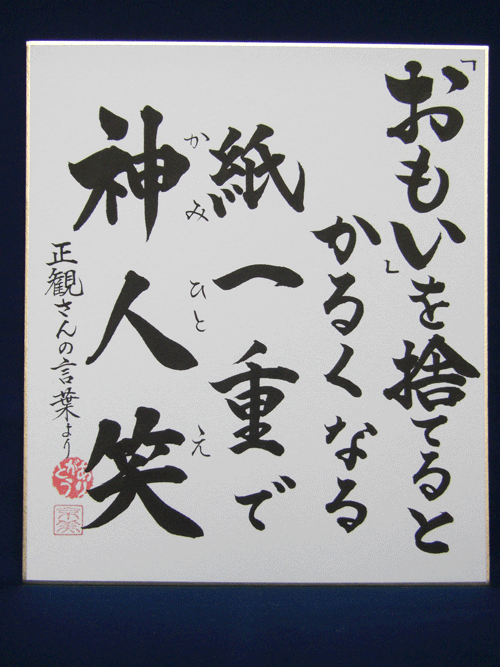 「おもい」を捨てると
かるくなる
紙一重で
神人笑
かみ ひと え
正観さんの言葉より
ありがとう